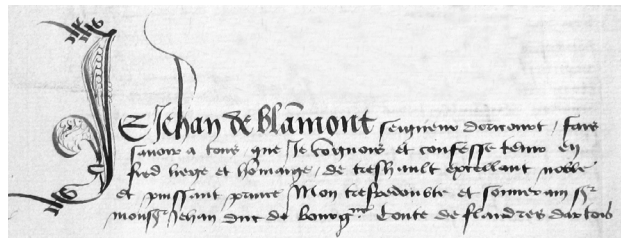 Je Jehan de Blāmont seigneur doricourt, fais
savoir a tous que Je cognois et confesse tenir en
fied liege et hōmaige, de treshault excellant noble
et puissant prince Mon tresredoubte et souverain sgr
monsgr Jehan duc de bourgne Conte de flandres dartois